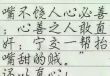 嘴不饶人心必善
；心善之人敢直
奸；宁交一帮抬
嘴甜的贼。”